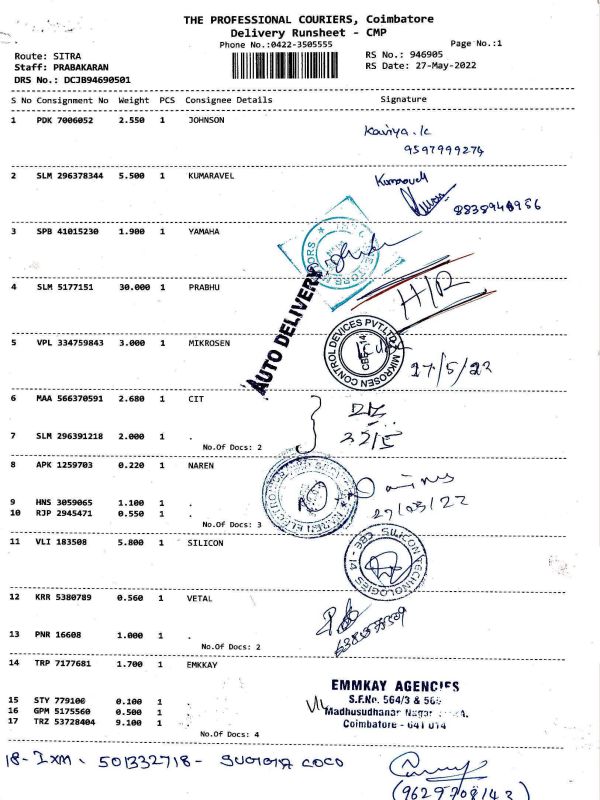 THE PROFESSIONAL COURIERS, Coimbatore
Delivery Runsheet - CMP
Phone No.:0422-3505555
Page No.:1
Route: SITRA
Staff: PRABAKARAN
DRS No.: DCJB94690501
RS No.: 946905
RS Date: 27-May-2022
S No Consignment No Weight PCS Consignee Details Signature
1 PDK 7006052 2.550 1 JOHNSON
Kaviya.k
9597999274
2 SLM 296378344 5.500 1 KUMARAVEL
Kumaravel
8838940956
3 SPB 41015230 1.900 1 YAMAHA
4 SLM 5177151 30.000 1 PRABHU
H/R
AUTO DELIVERY
5 VPL 334759843 3.000 1 MIKROSEN
MIKROSEN CONTROL DEVICES PVT.LTD
CBE-14
27/5/22
6 MAA 566370591 2.680 1 CIT
7 SLM 296391218 2.000 1 .
No.Of Docs: 2
8 APK 1259703 0.220 1 NAREN
NAREN ELECTRONICS
9 HNS 3059065 1.100 1 .
10 RJP 2945471 0.550 1 .
No.Of Docs: 3
11 VLI 183508 5.800 1 SILICON
SILICON TECHNOLOGIES - 14 - CBE
12 KRR 5380789 0.560 1 VETAL
13 PNR 16608 1.000 1 .
No.Of Docs: 2
14 TRP 7177681 1.700 1 EMKKAY
EMMKAY AGENCIES
S.F.No. 564/3 &
Madhusudhanan Nagar
Coimbatore - 641 014
15 STY 779100 0.100 1 .
16 GPM 5175560 0.500 1 .
17 TRZ 53728404 9.100 1 .
No.Of Docs: 4
18 - IXM - 501332718 - SUGUNA COCO
(9629708143)